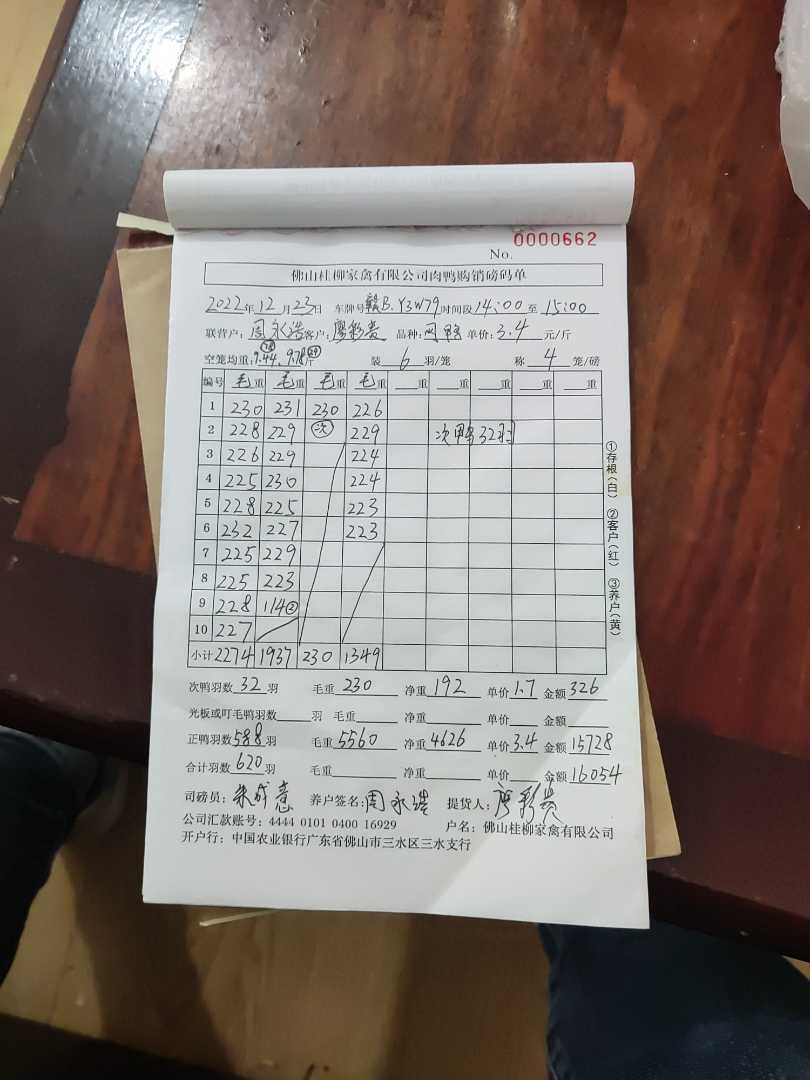 No. 0000662
佛山桂柳家禽有限公司肉鸭购销磅码单
2022年12月23日 车牌号赣B.Y3W79时间段14:00至15:00
联营户:周永浩客户:廖彩贵 品种: 单价:3.4元/斤
空笼均重:9.44. 9.78斤 装6羽/笼 称4笼/磅
编号 毛重 毛重 毛重 毛重 重 重 重 重 重
1 230 231 230 226
2 228 229 次 229 次鸭32羽
3 226 229 224
4 225 230 224
5 228 225 223
6 232 227 223
7 225 229
8 225 223
9 228 114②
10 227
小计 2274 1937 230 1349
次鸭羽数32羽 毛重230 净重192 单价1.7 金额326
光板或叮毛鸭羽数 羽 毛重 净重 单价 金额
正鸭羽数588羽 毛重5560 净重4626 单价3.4 金额15728
合计羽数620羽 毛重 净重 单价 金额16054
司磅员:朱成意 养户签名:周永浩 提货人:廖彩贵
公司汇款账号:4444 0101 0400 16929 户名:佛山桂柳家禽有限公司
开户行:中国农业银行广东省佛山市三水区三水支行
①存根(白) ②客户(红) ③养户(黄)